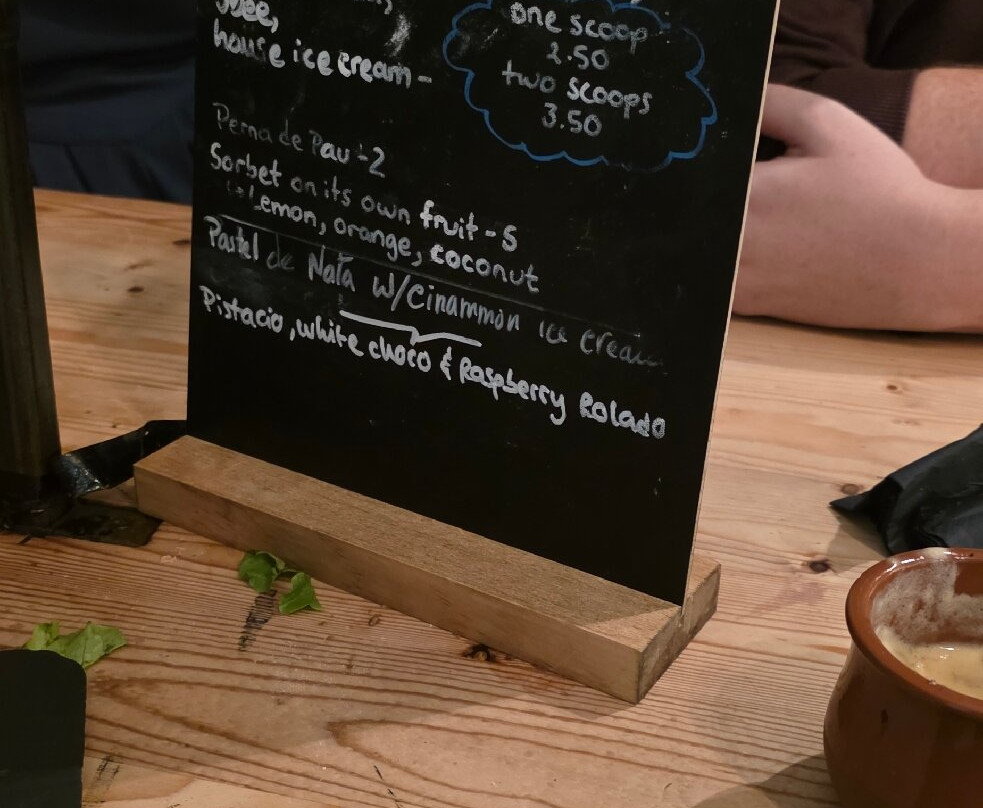 house ice cream -
one scoop
2.50
two scoops
3.50
Perna de Pau - 2
Sorbet on its own fruit - 5
Lemon, orange, coconut
Pastel de Nata w/Cinammon ice cream
Pistacio, white choco & Raspberry Rolado